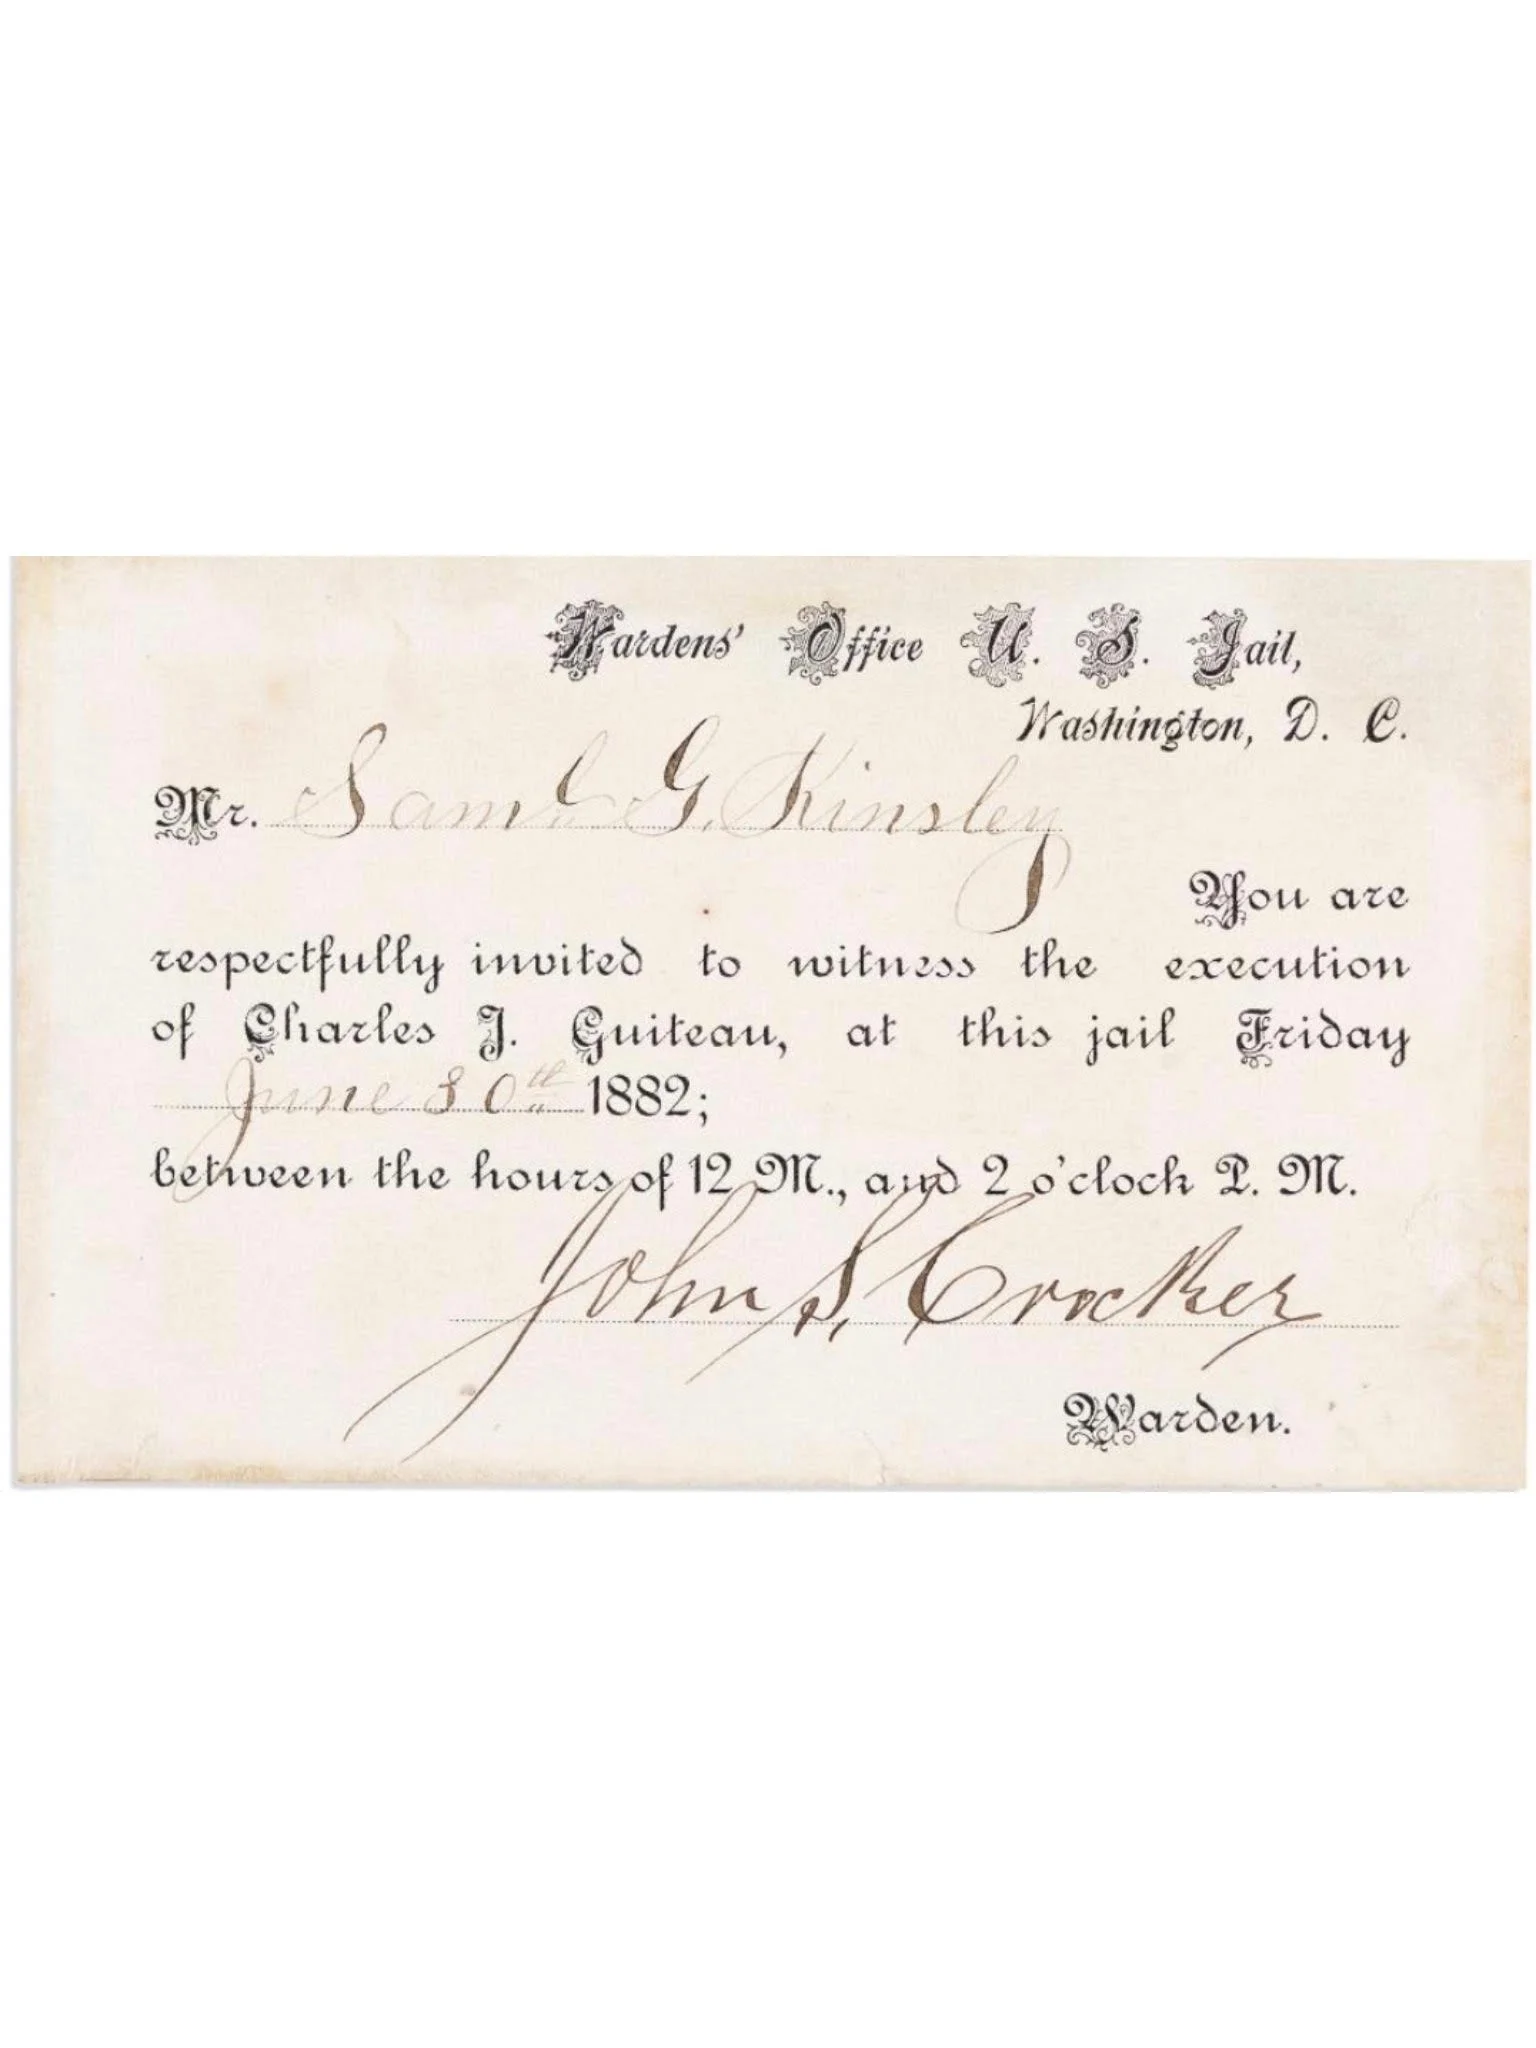 Wardens' Office U. S. Jail,
Washington, D. C.
Mr. Saml. G. Kinsley
You are
respectfully invited to witness the execution
of Charles J. Guiteau, at this jail Friday
June 30th 1882;
between the hours of 12 M., and 2 o'clock P. M.
John S. Crocker
Warden.